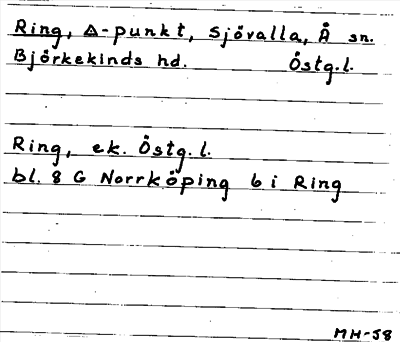 Ring, Δ-punkt, Sjövalla, Å sn.
Björkekinds hd. Östg.l.
Ring, ek. Östg.l.
bl. 8 G Norrköping 6 i Ring
MH-58